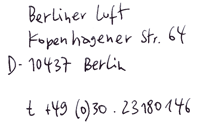 Berliner Luft
Kopenhagener Str. 64
D-10437 Berlin
t +49 (0)30.23180146